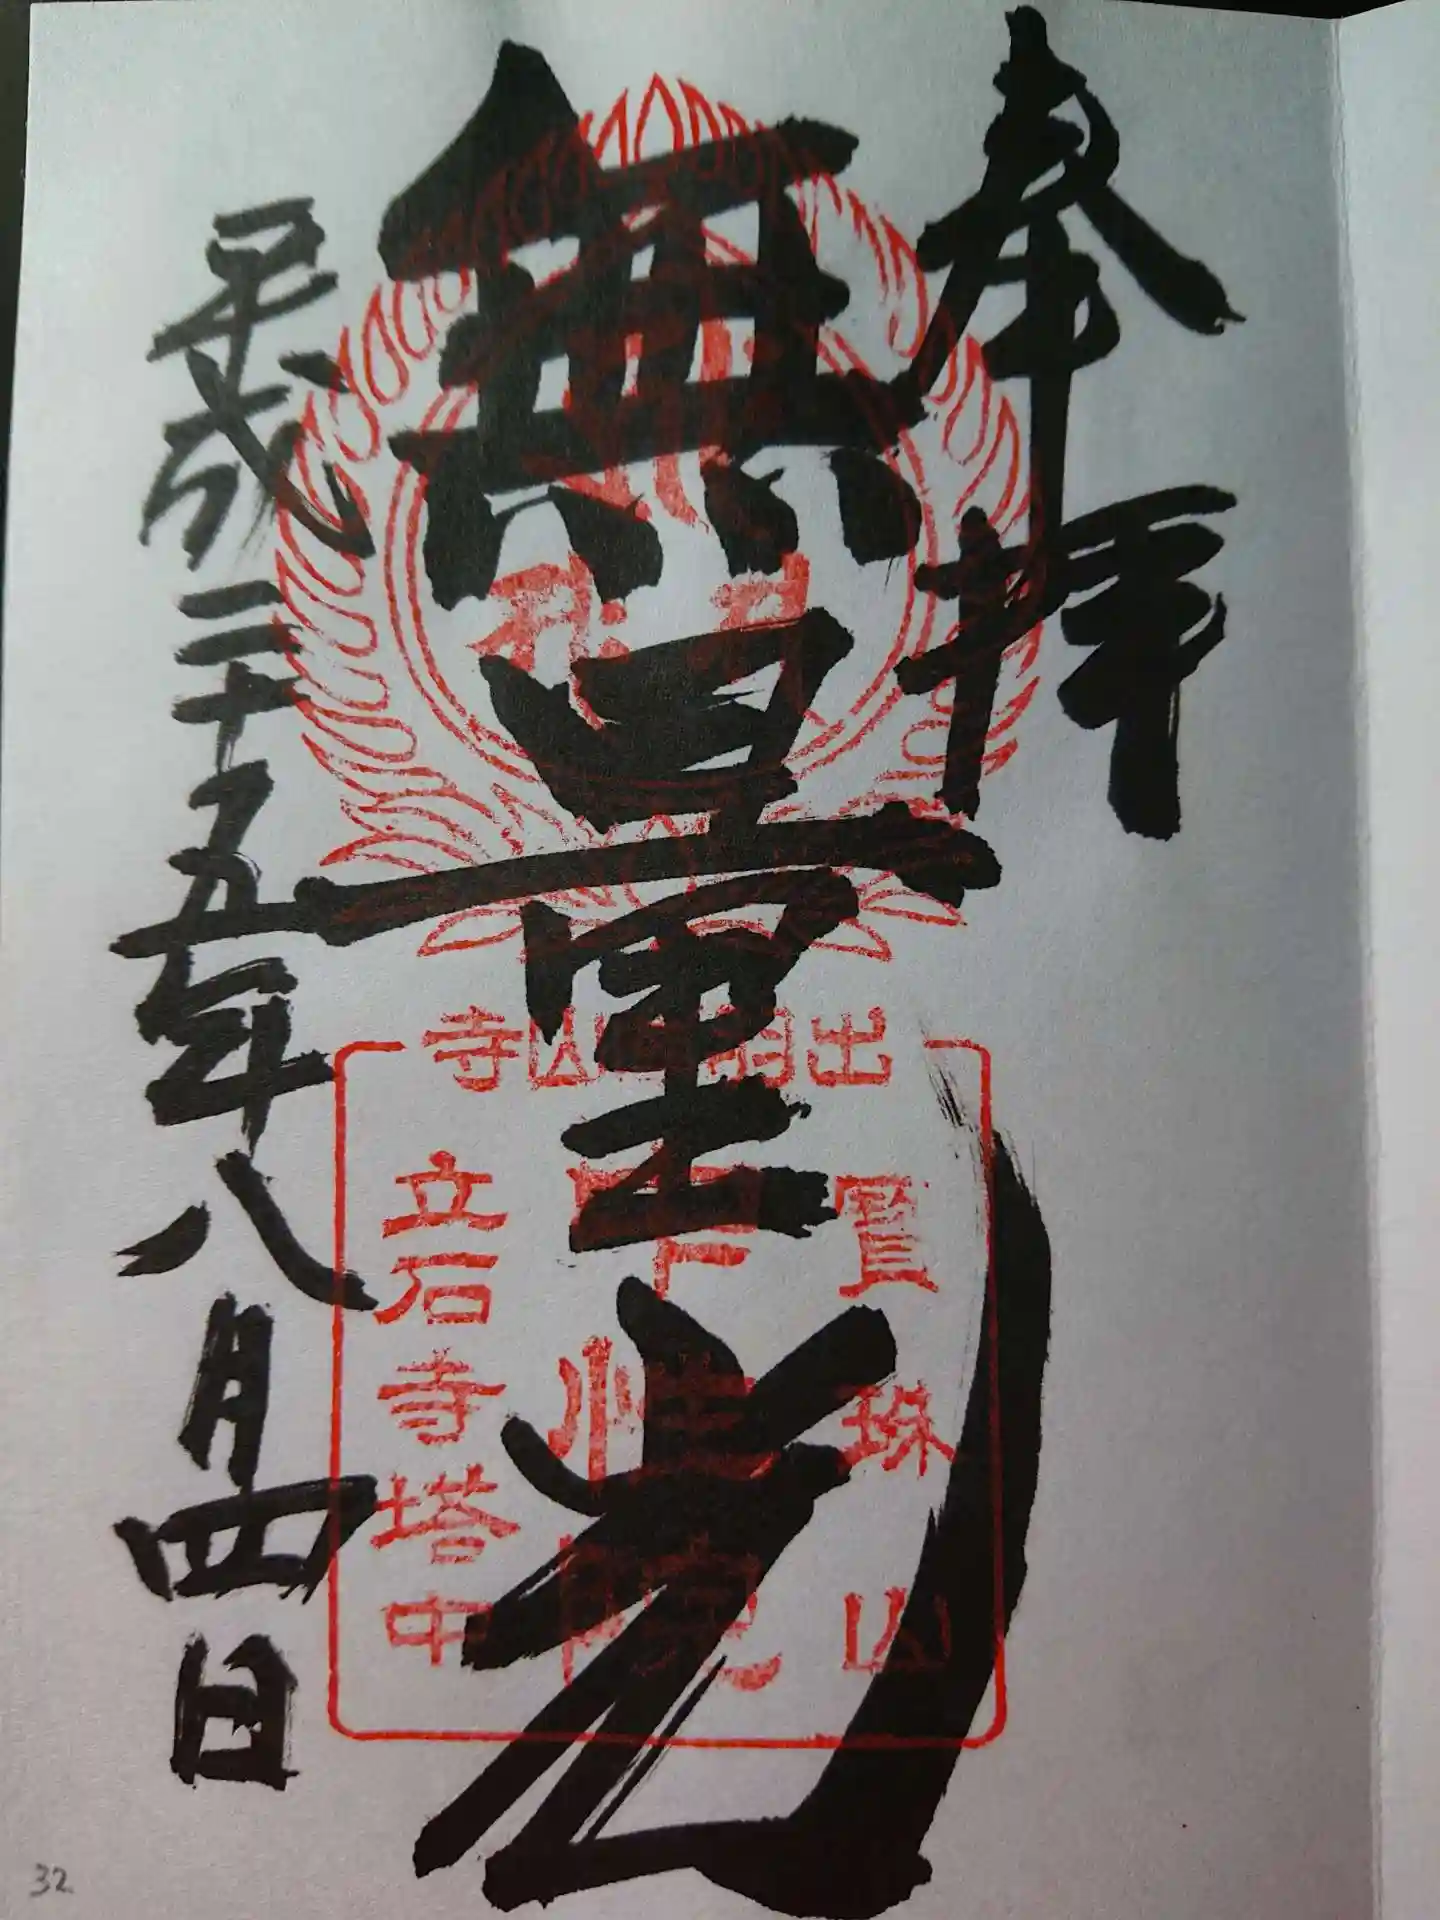 奉拝
無量光
平成二十五年八月四日
出羽山寺
賢珠山
性院
立石寺塔中
32